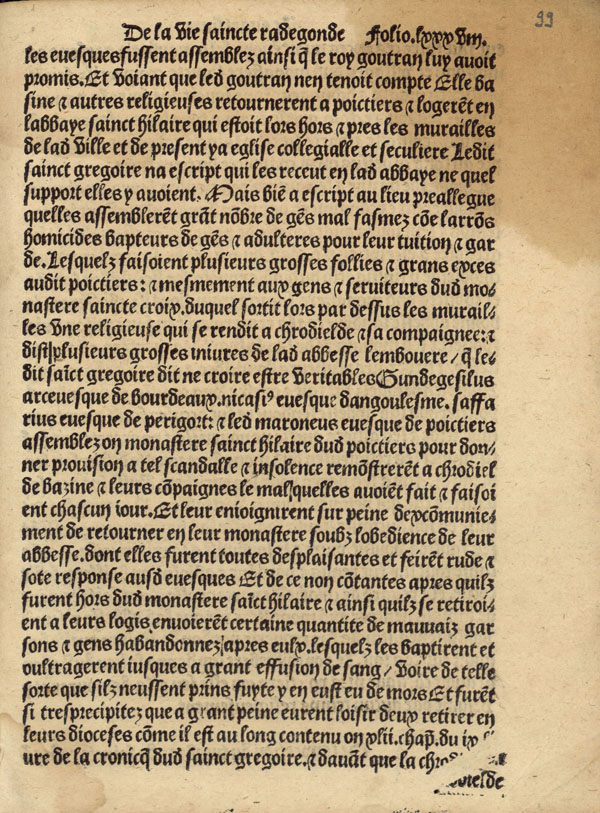 De la vie saincte radegonde Folio.lxxxviii. 99
les euesques fussent assemblez ainsi q̃ le roy goutran luy auoit
promis. Et voiant que led goutran nen tenoit compte Elle ba
sine ⁊ autres religieuses retournerent a poictiers ⁊ logerẽt en
labbaye sainct hilaire qui estoit lors hors ⁊ pres les murailles
de lad ville et de present ya eglise collegialle et seculiere Ledit
sainct gregoire na escript qui les receut en lad abbaye ne quel
support elles y auoient. Mais biẽ a escript au lieu preallegue
quelles assemblerẽt grãt nõbre de gẽs mal fasmez cõe larrõs
homicides bapteurs de gẽs ⁊ adulteres pour leur tuition ⁊ gar
de. Lesquelz faisoient plusieurs grosses follies ⁊ grans exces
audit poictiers: ⁊ mesmement aux gens ⁊ seruiteurs dud mo⸗
nastere saincte croix. duquel sortit lors par dessus les murail⸗
les vne religieuse qui se rendit a chrodielde ⁊ sa compaignee: ⁊
dist plusieurs grosses iniures de lad abbesse lembouere/ q̃ le⸗
dit saĩct gregoire dit ne croire estre veritables Gundegesilus
arceuesque de bourdeaux. nicasiꝰ euesque dangoulesme. saffa
rius euesque de perigort: ⁊ led maroneus euesque de poictiers
assemblez on monastere sainct hilaire dud poictiers pour don⸗
ner prouision a tel scandalle ⁊ insolence remõstrerẽt a chrodiel
de bazine ⁊ leurs cõpaignes le mal quelles auoiẽt fait ⁊ faisoi
ent chascun iour. Et leur enioignirent sur peine dexcõmunie⸗
ment de retourner en leur monastere soubz lobedience de leur
abbesse. dont elles furent toutes desplaisantes et feirẽt rude ⁊
sote response ausd euesques Et de ce non cõtantes apres quilz
furent hors dud monastere saĩct hilaire ⁊ ainsi quilz se retiroi⸗
ent a leurs logis enuoierẽt certaine quantite de mauuaiz gar
sons ⁊ gens habandonnez apres eulx. lesquelz les baptirent et
oultragerent iusques a grant effusion de sang/ voire de telle
sorte que silz neussent prins fuyte y en eust eu de mors Et furẽt
si tresprecipitez que a grant peine eurent loisir deux retirer en
leurs dioceses cõme il est au long contenu on xlii. chap̃. du ix
ure de la cronicq̃ dud sainct gregoire. ⁊ dauãt que la